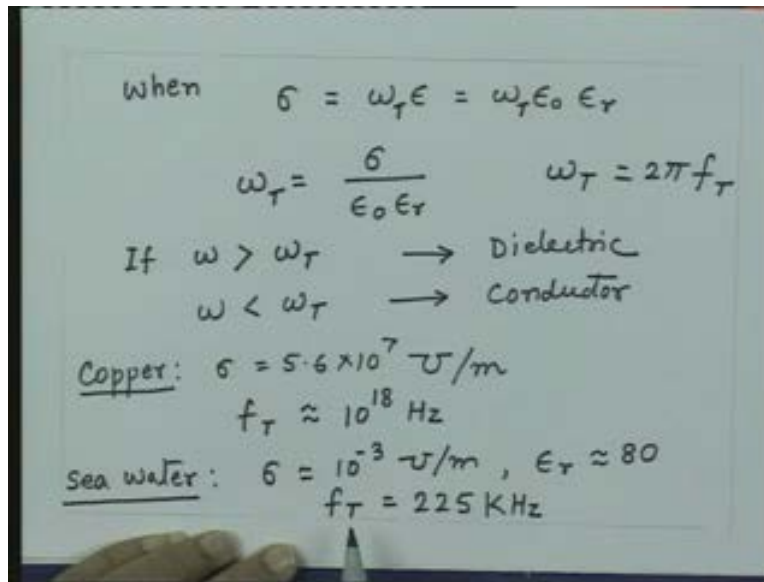 When σ = ω_T ϵ = ω_T ϵ₀ ϵᵣ
ω_T = σ / ϵ₀ ϵᵣ ω_T = 2π f_T
If ω > ω_T → Dielectric
ω < ω_T → Conductor
Copper: σ = 5.6 × 10⁷ ℧/m
f_T ≈ 10¹⁸ Hz
Sea water: σ = 10⁻³ ℧/m , ϵᵣ ≈ 80
f_T = 225 KHz